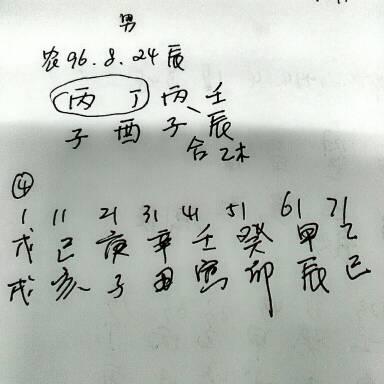 男
农96.8.24辰
丙丁丙壬
子酉子辰
合乙木
④
1 11 21 31 41 51 61 71
戊己庚辛壬癸甲乙
戌亥子丑寅卯辰巳